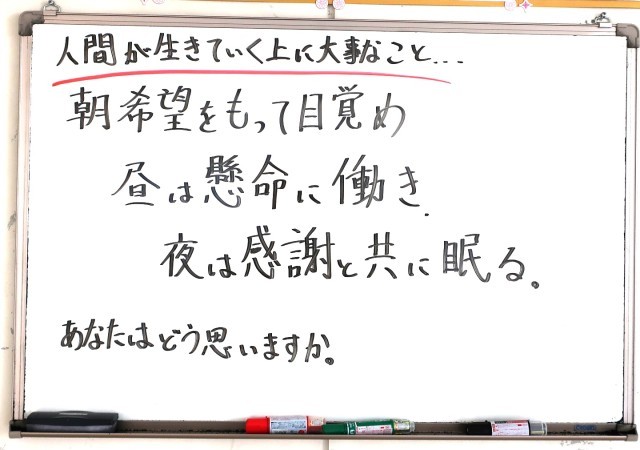 人間が生きていく上に大事なこと...
朝希望をもって目覚め
昼は懸命に働き.
夜は感謝と共に眠る。
あなたはどう思いますか。